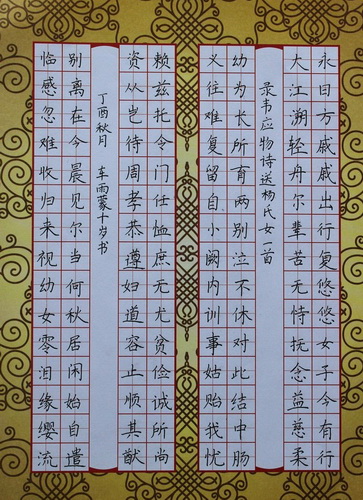 永日方戚戚出行复悠悠女子今有行
大江溯轻舟尔辈苦无恃抚念益慈柔
录韦应物诗送杨氏女一首
幼为长所育两别泣不休对此结中肠
义往难复留自小阙内训事姑贻我忧
赖兹托令门任恤庶无尤贫俭诚所尚
资从岂待周孝恭遵妇道容止顺其猷
丁酉秋月 车雨蒙十岁书
别离在今晨见尔当何秋居闲始自遣
临感忽难收归来视幼女零泪缘缨流